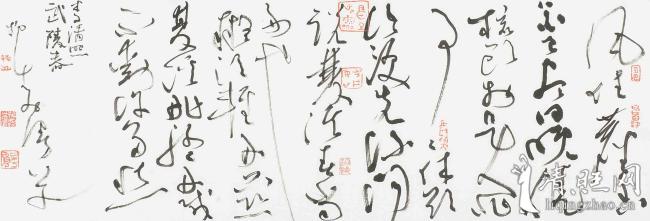 风住尘香
花已尽日晚倦
梳头物是人非
事々休欲
语泪先流闻
说双溪春尚
好也
拟泛轻舟只恐
双溪舴艋舟载
不动许多愁
李清照
武陵春
liqingzhao.com